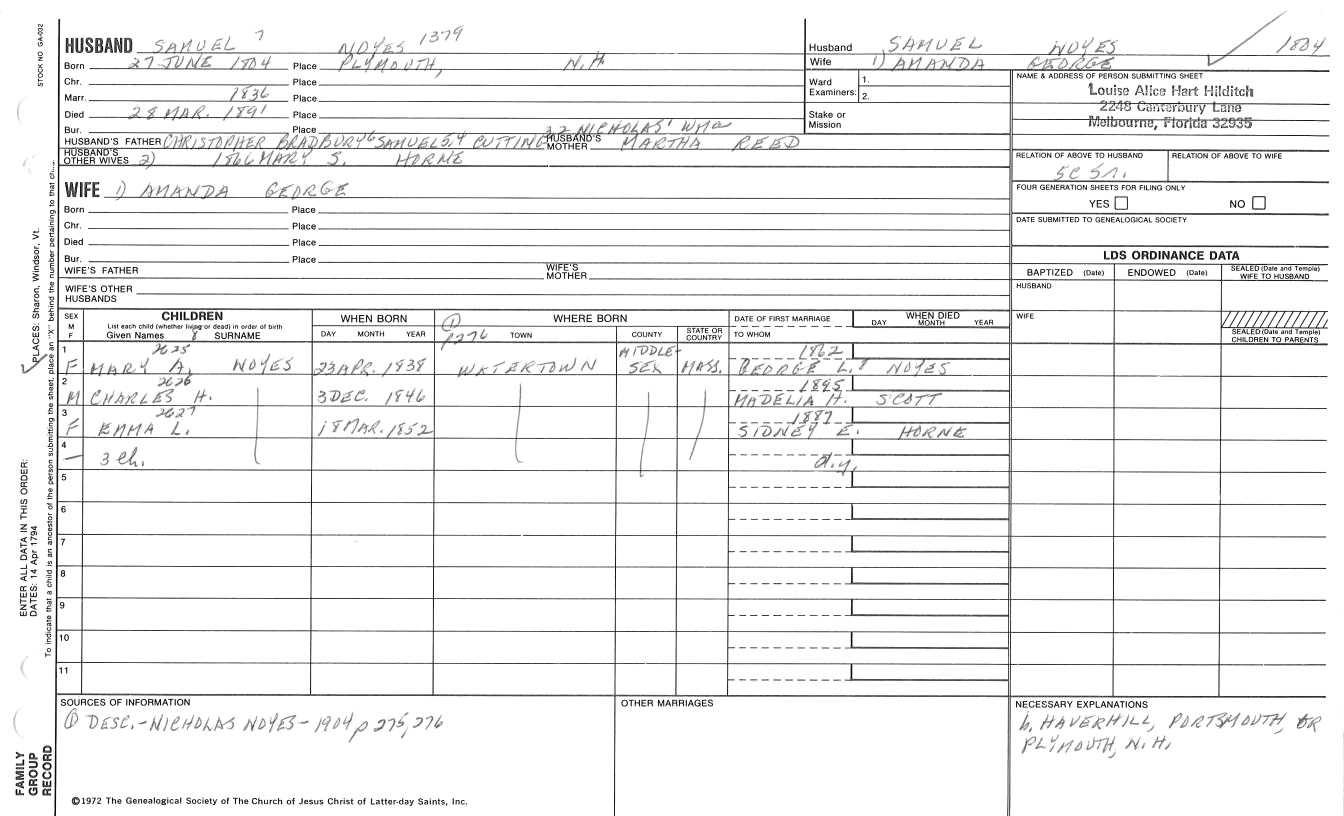 STOCK NO GA-032
HUSBAND SAMUEL 7 NOYES 1379
Born 27 JUNE 1804 Place PLYMOUTH, N.H.
Chr. Place
Marr. 1836 Place
Died 28 MAR. 1891 Place
Bur. Place
HUSBAND'S FATHER CHRISTOPHER BRADBURY 6 SAMUEL 5,4 CUTTING 3,2 NICHOLAS' WM a HUSBAND'S MOTHER MARTHA REED
HUSBAND'S OTHER WIVES 2) 1866 MARY S. HORNE
WIFE 1) AMANDA GEORGE
Born Place
Chr. Place
Died Place
Bur. Place
WIFE'S FATHER WIFE'S MOTHER
WIFE'S OTHER HUSBANDS
Husband SAMUEL NOYES 1804
Wife 1) AMANDA GEORGE
Ward Examiners: 1.
2.
Stake or Mission
NAME & ADDRESS OF PERSON SUBMITTING SHEET
Louise Alice Hart Hilditch
2248 Canterbury Lane
Melbourne, Florida 32935
RELATION OF ABOVE TO HUSBAND RELATION OF ABOVE TO WIFE
5C 5r.
FOUR GENERATION SHEETS FOR FILING ONLY
YES NO
DATE SUBMITTED TO GENEALOGICAL SOCIETY
LDS ORDINANCE DATA
BAPTIZED (Date) ENDOWED (Date) SEALED (Date and Temple) WIFE TO HUSBAND
HUSBAND
WIFE
SEALED (Date and Temple) CHILDREN TO PARENTS
SEX M F CHILDREN WHEN BORN WHERE BORN DATE OF FIRST MARRIAGE WHEN DIED
List each child (whether living or dead) in order of birth
Given Names 8 SURNAME DAY MONTH YEAR ① p276 TOWN COUNTY STATE OR COUNTRY TO WHOM DAY MONTH YEAR
1 2625 MIDDLE- 1862
F MARY A. NOYES 23 APR. 1838 WATERTOWN SEX MASS. GEORGE L. 8 NOYES
2 2626 1895
M CHARLES H. 3 DEC. 1846 MADELIA H. SCOTT
3 2627 1887
F EMMA L. 18 MAR. 1852 SIDNEY E. HORNE
4
— 3 ch. d.y.
5
6
7
8
9
10
11
SOURCES OF INFORMATION
① DESC.-NICHOLAS NOYES-1904 p 275,276
OTHER MARRIAGES
NECESSARY EXPLANATIONS
b. HAVERHILL, PORTSMOUTH, OR
PLYMOUTH, N.H.
©1972 The Genealogical Society of The Church of Jesus Christ of Latter-day Saints, Inc.
FAMILY
GROUP
RECORD
ENTER ALL DATA IN THIS ORDER:
DATES: 14 Apr 1794
PLACES: Sharon, Windsor, Vt.
To indicate that a child is an ancestor of the person submitting the sheet, place an "X" behind the number pertaining to that ch...